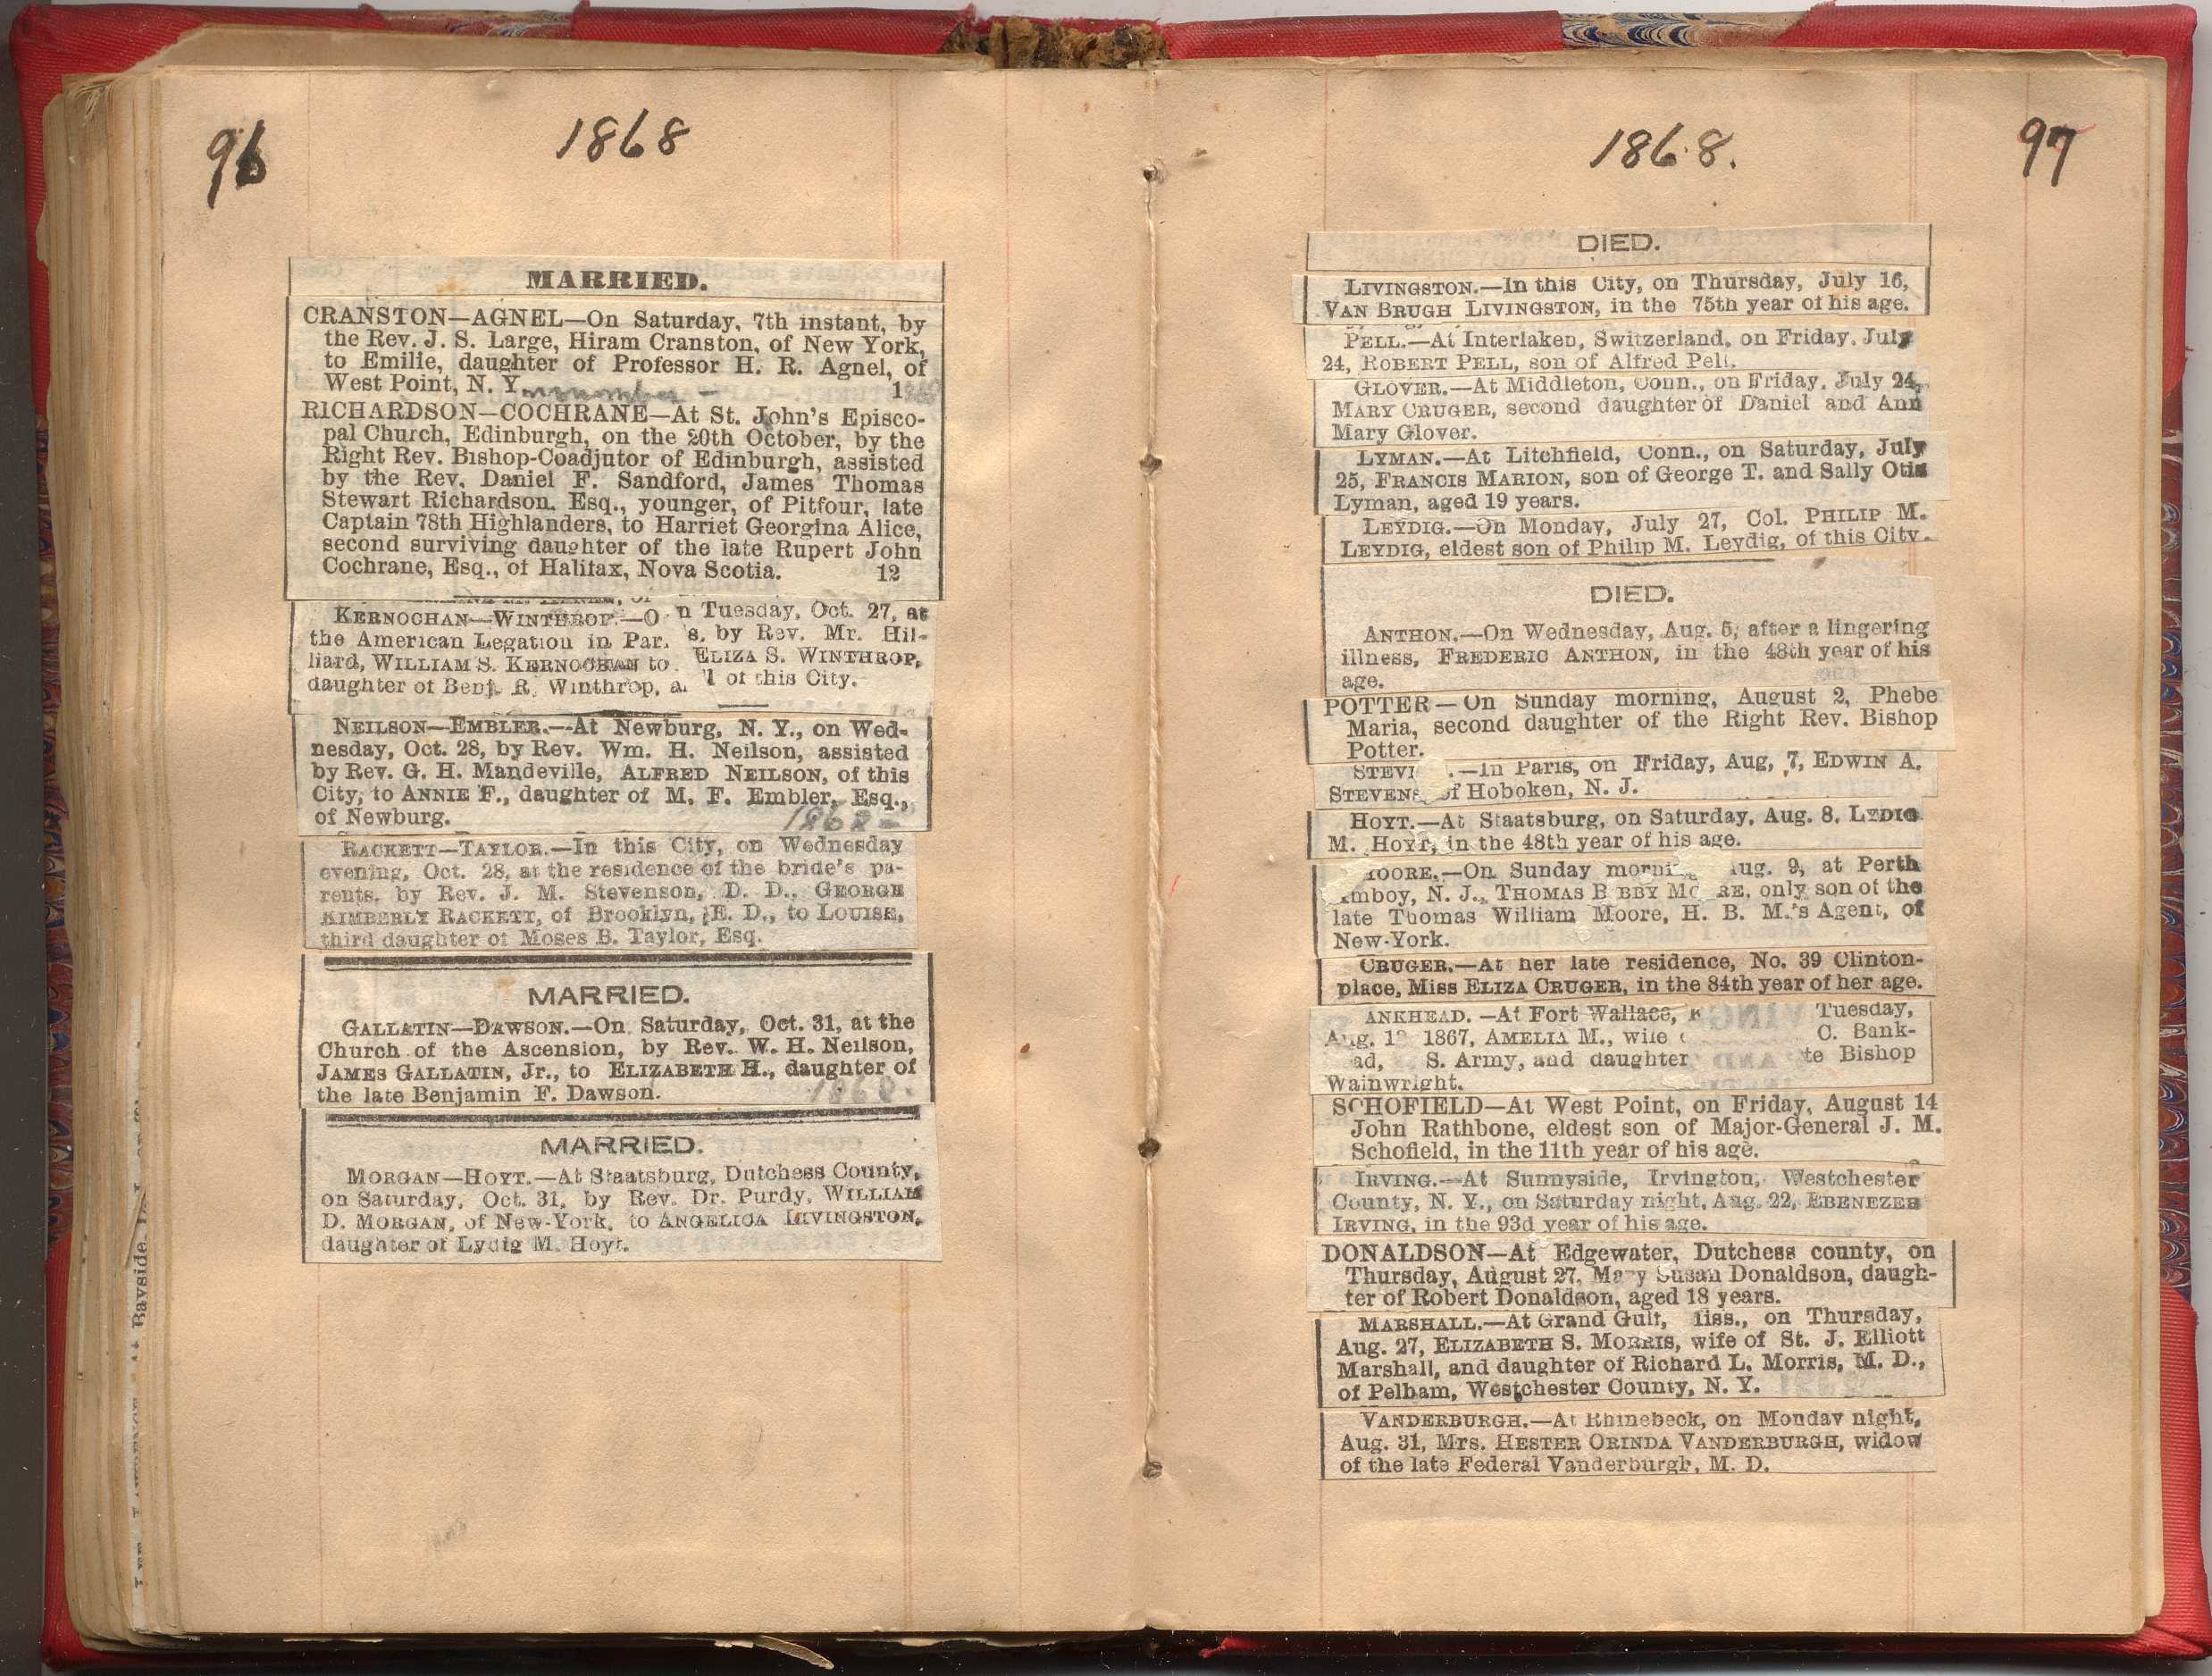 96
1868
MARRIED.
CRANSTON—AGNEL—On Saturday, 7th instant, by
the Rev. J. S. Large, Hiram Cranston, of New York,
to Emilie, daughter of Professor H. R. Agnel, of
West Point, N. Y. 1
RICHARDSON—COCHRANE—At St. John's Episco-
pal Church, Edinburgh, on the 20th October, by the
Right Rev. Bishop-Coadjutor of Edinburgh, assisted
by the Rev. Daniel F. Sandford, James Thomas
Stewart Richardson, Esq., younger, of Pitfour, late
Captain 78th Highlanders, to Harriet Georgina Alice,
second surviving daughter of the late Rupert John
Cochrane, Esq., of Halifax, Nova Scotia. 12
KERNOCHAN—WINTHROP.—On Tuesday, Oct. 27, at
the American Legation in Par s, by Rev. Mr. Hil-
liard, WILLIAM S. KERNOCHAN to ELIZA S. WINTHROP,
daughter of Benj. R. Winthrop, a l of this City.
NEILSON—EMBLER.—At Newburg, N. Y., on Wed-
nesday, Oct. 28, by Rev. Wm. H. Neilson, assisted
by Rev. G. H. Mandeville, ALFRED NEILSON, of this
City, to ANNIE F., daughter of M. F. Embler, Esq.,
of Newburg. 1868—
RACKETT—TAYLOR.—In this City, on Wednesday
evening, Oct. 28, at the residence of the bride's pa-
rents, by Rev. J. M. Stevenson, D. D., GEORGE
KIMBERLY RACKETT, of Brooklyn, E. D., to LOUISE,
third daughter of Moses B. Taylor, Esq.
MARRIED.
GALLATIN—DAWSON.—On Saturday, Oct. 31, at the
Church of the Ascension, by Rev. W. H. Neilson,
JAMES GALLATIN, Jr., to ELIZABETH H., daughter of
the late Benjamin F. Dawson. 1868.
MARRIED.
MORGAN—HOYT.—At Staatsburg, Dutchess County,
on Saturday, Oct. 31, by Rev. Dr. Purdy, WILLIAM
D. MORGAN, of New-York, to ANGELICA LIVINGSTON,
daughter of Lydig M. Hoyt.
Bayside
1868.
97
DIED.
LIVINGSTON.—In this City, on Thursday, July 16,
VAN BRUGH LIVINGSTON, in the 75th year of his age.
PELL.—At Interlaken, Switzerland, on Friday, July
24, ROBERT PELL, son of Alfred Pell.
GLOVER.—At Middleton, Conn., on Friday, July 24,
MARY CRUGER, second daughter of Daniel and Ann
Mary Glover.
LYMAN.—At Litchfield, Conn., on Saturday, July
25, FRANCIS MARION, son of George T. and Sally Otis
Lyman, aged 19 years.
LEYDIG.—On Monday, July 27, Col. PHILIP M.
LEYDIG, eldest son of Philip M. Leydig, of this City.
DIED.
ANTHON.—On Wednesday, Aug. 5, after a lingering
illness, FREDERIC ANTHON, in the 48th year of his
age.
POTTER—On Sunday morning, August 2, Phebe
Maria, second daughter of the Right Rev. Bishop
Potter.
STEV .—In Paris, on Friday, Aug, 7, EDWIN A.
STEVENS of Hoboken, N. J.
HOYT.—At Staatsburg, on Saturday, Aug. 8, LYDIG
M. HOYT, in the 48th year of his age.
OORE.—On Sunday morni ug. 9, at Perth
mboy, N. J., THOMAS B BBY MO RE, only son of the
late Thomas William Moore, H. B. M.'s Agent, of
New-York.
CRUGER.—At her late residence, No. 39 Clinton-
place, Miss ELIZA CRUGER, in the 84th year of her age.
ANKHEAD.—At Fort Wallace, K Tuesday,
Aug. 1 1867, AMELIA M., wife C. Bank-
ad, S. Army, and daughter te Bishop
Wainwright.
SCHOFIELD—At West Point, on Friday, August 14
John Rathbone, eldest son of Major-General J. M.
Schofield, in the 11th year of his age.
IRVING.—At Sunnyside, Irvington, Westchester
County, N. Y., on Saturday night, Aug. 22, EBENEZER
IRVING, in the 93d year of his age.
DONALDSON—At Edgewater, Dutchess county, on
Thursday, August 27, Mary Susan Donaldson, daugh-
ter of Robert Donaldson, aged 18 years.
MARSHALL.—At Grand Gulf, iss., on Thursday,
Aug. 27, ELIZABETH S. MORRIS, wife of St. J. Elliott
Marshall, and daughter of Richard L. Morris, M. D.,
of Pelham, Westchester County, N. Y.
VANDERBURGH.—At Rhinebeck, on Monday night,
Aug. 31, Mrs. HESTER ORINDA VANDERBURGH, widow
of the late Federal Vanderburgh, M. D.